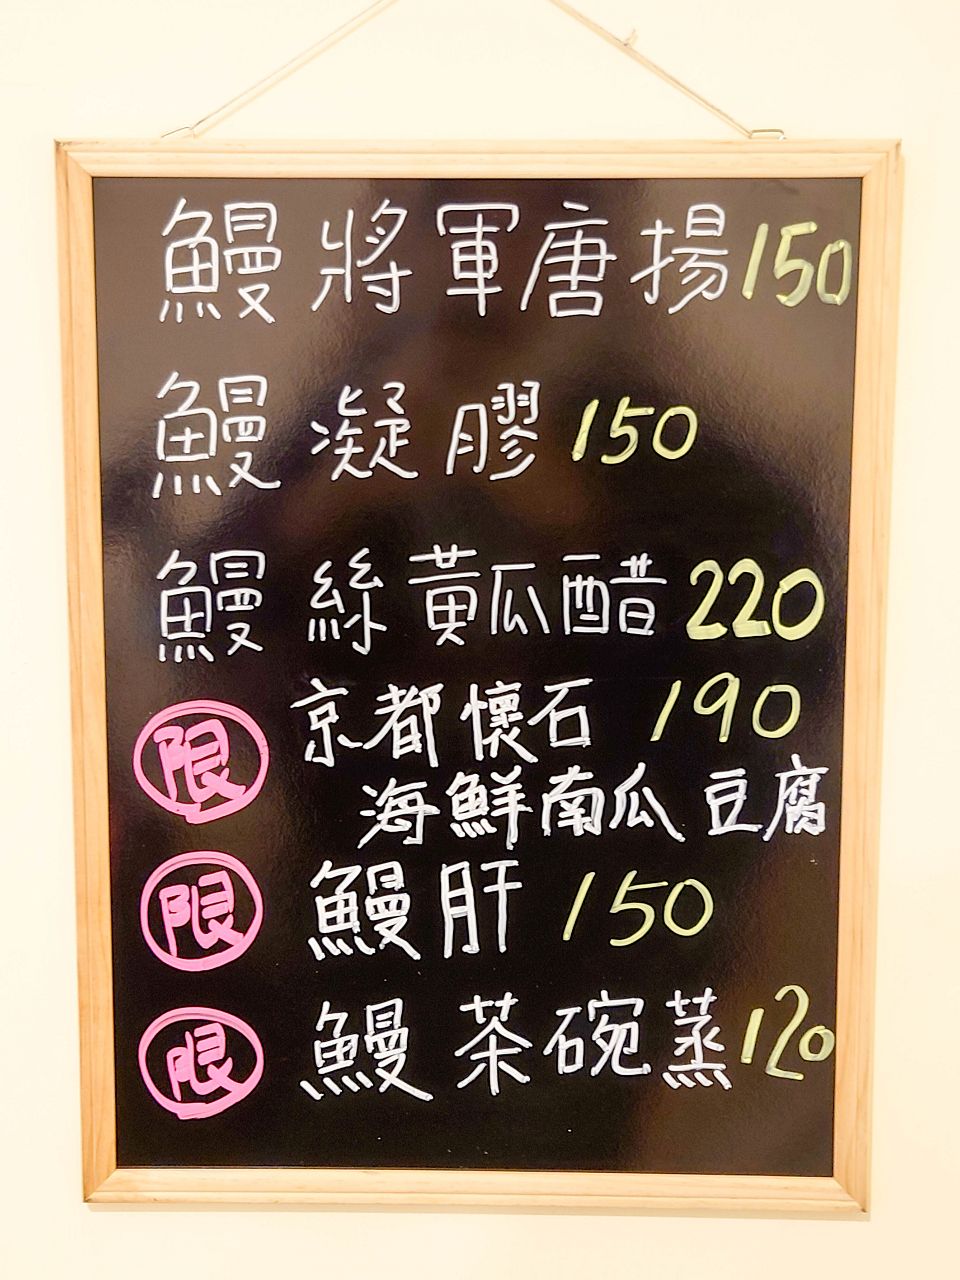 鰻將軍唐揚150
鰻凝膠150
鰻絲黃瓜醋220
限 京都懷石 190
海鮮南瓜豆腐
限 鰻肝 150
限 鰻茶碗蒸120